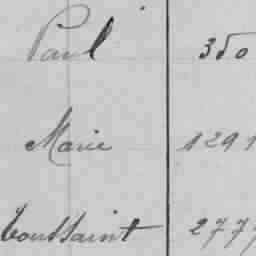 Paul 350
Marie 1291
Toussaint 2777